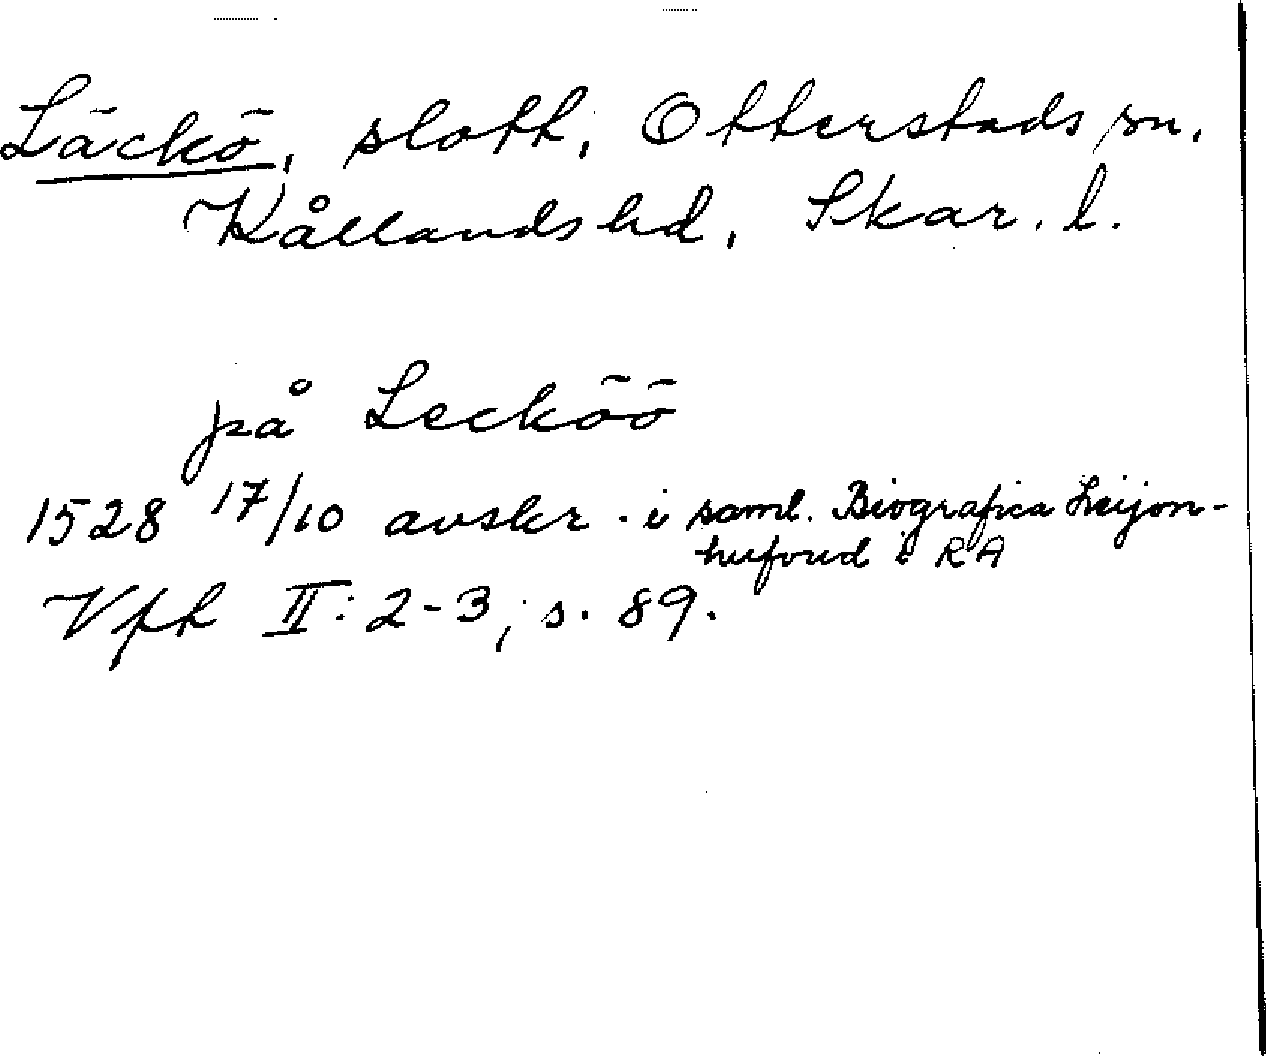 Läckö, slott, Otterstads sn,
Kållands hd, Skar. l.
på Lecköö
1528 17/10 avskr. i saml. Biografica Leijon-
hufvud i RA
Vfk II: 2-3, s. 89.